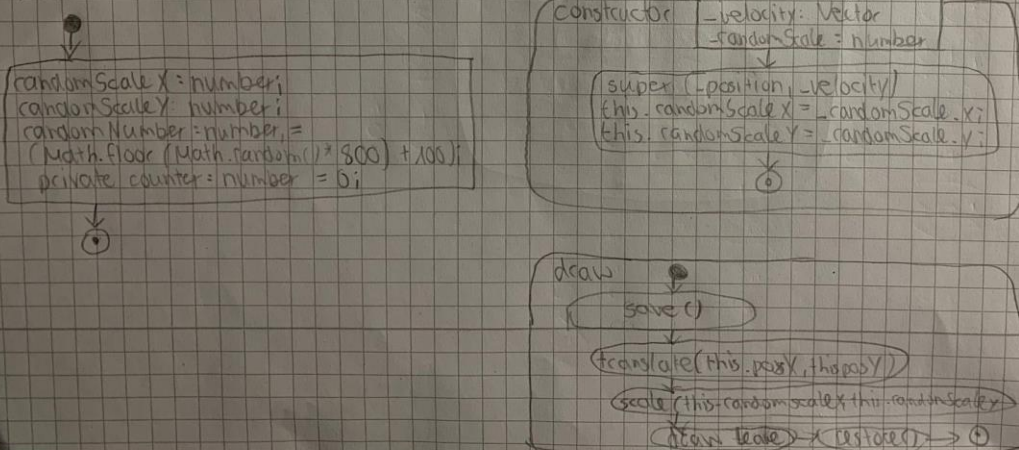 randomScaleX: number;
randomScaleY: number;
randomNumber: number, =
(Math.floor (Math.random() * 800) + 100);
private counter: number = 0;
constructor
_velocity: Vector
_randomScale: number
super (_position, _velocity)
this.randomScaleX = _randomScale.x;
this.randomScaleY = _randomScale.y;
draw
save()
translate(this.posX, this.posY)
scale(this.randomscalex, this.randomScaley
draw leave
restore()